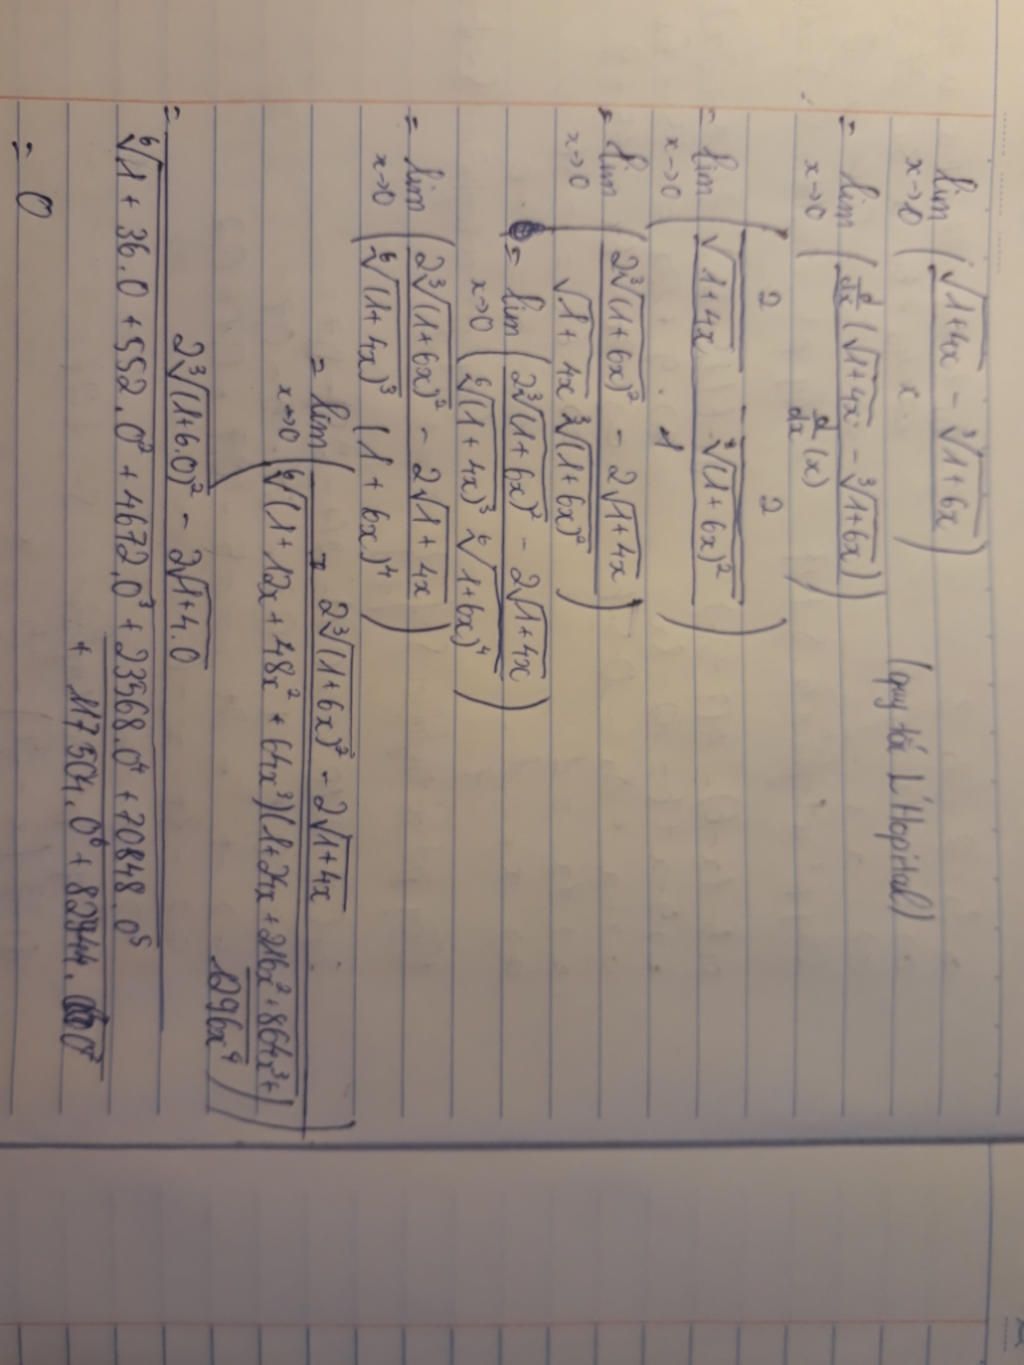 lim x→0 ( (√(1+4x) − ∛(1+6x)) / x )
= lim x→0 ( d/dx (√(1+4x) − ∛(1+6x)) / d/dx (x) ) (quy tắc L'Hopital)
= lim x→0 ( ( 2/√(1+4x) 2/∛((1+6x)²) ) / 1 )
= lim x→0 ( (2∛((1+6x)²) − 2√(1+4x)) / (√(1+4x) ∛((1+6x)²)) )
= lim x→0 ( (2∛((1+6x)²) − 2√(1+4x)) / (⁶√((1+4x)³) ⁶√((1+6x)⁴)) )
= lim x→0 ( (2∛((1+6x)²) − 2√(1+4x)) / ⁶√((1+4x)³ (1+6x)⁴) )
= lim x→0 ( (2∛((1+6x)²) − 2√(1+4x)) / ⁶√((1+12x+48x²+64x³)(1+24x+216x²+864x³+1296x⁴)) )
= (2∛((1+6.0)²) − 2√(1+4.0)) / ⁶√(1+36.0+552.0²+4672.0³+23568.0⁴+70848.0⁵
+ 117504.0⁶+82944.0⁷)
= 0